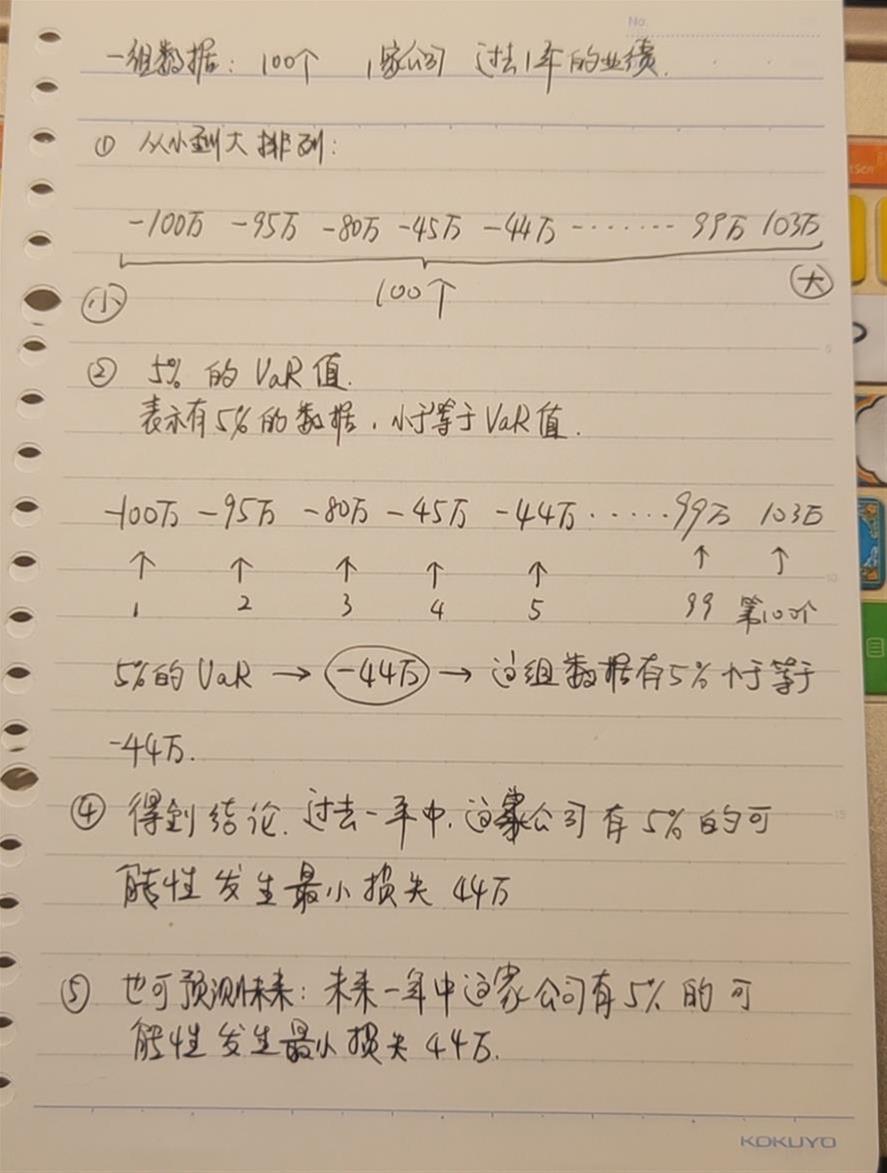 No.
一组数据: 100个 1家公司 过去1年的业绩.
① 从小到大排列:
-100万 -95万 -80万 -45万 -44万 ········ 99万 103万
小 100个 大
② 5% 的 VaR 值.
表示有5%的数据, 小于等于VaR值.
-100万 -95万 -80万 -45万 -44万 ······ 99万 103万
↑ ↑ ↑ ↑ ↑ ↑ ↑
1 2 3 4 5 99 第100个
5%的 VaR → -44万 → 这组数据有5%小于等于
-44万.
④ 得到结论. 过去一年中, 这家公司有 5% 的可
能性 发生 最小 损失 44万
⑤ 也可预测未来: 未来一年中这家公司有5% 的 可
能性 发生最小 损失 44万.
KOKUYO